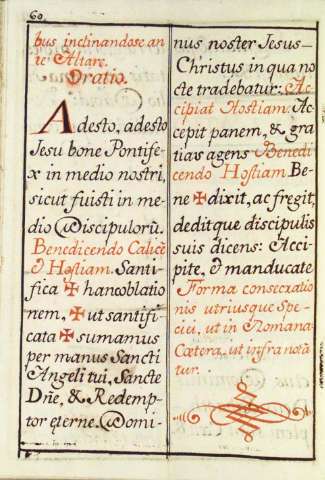 60
bus inclinandose an
te Altare.
Oratio.
Adesto, adesto
Jesu bone Pontife
x in medio nostri,
sicut fuisti in me
dio Discipulorū.
Benedicendo Calicē
& Hostiam. Sancti
fica ✠ hanc oblatio
nem, ✠ ut santifi
cata ✠ sumamus
per manus Sancti
Angeli tui, Sancte
Dñe, & Redemp
tor ęterne. Domi-
nus noster Jesus-
Christus in qua no
cte tradebatur: Ac
cipiat Hostiam. Ac
cepit panem, & gra
tias agens Benedi
cendo Hostiam Be
ne ✠ dixit, ac fregit,
deditque discipulis
suis dicens: Acci
pite, & manducate
Forma consecratio
nis utriusque Spe
ciei, ut in Romana
Cætera, ut infra notā
tur.